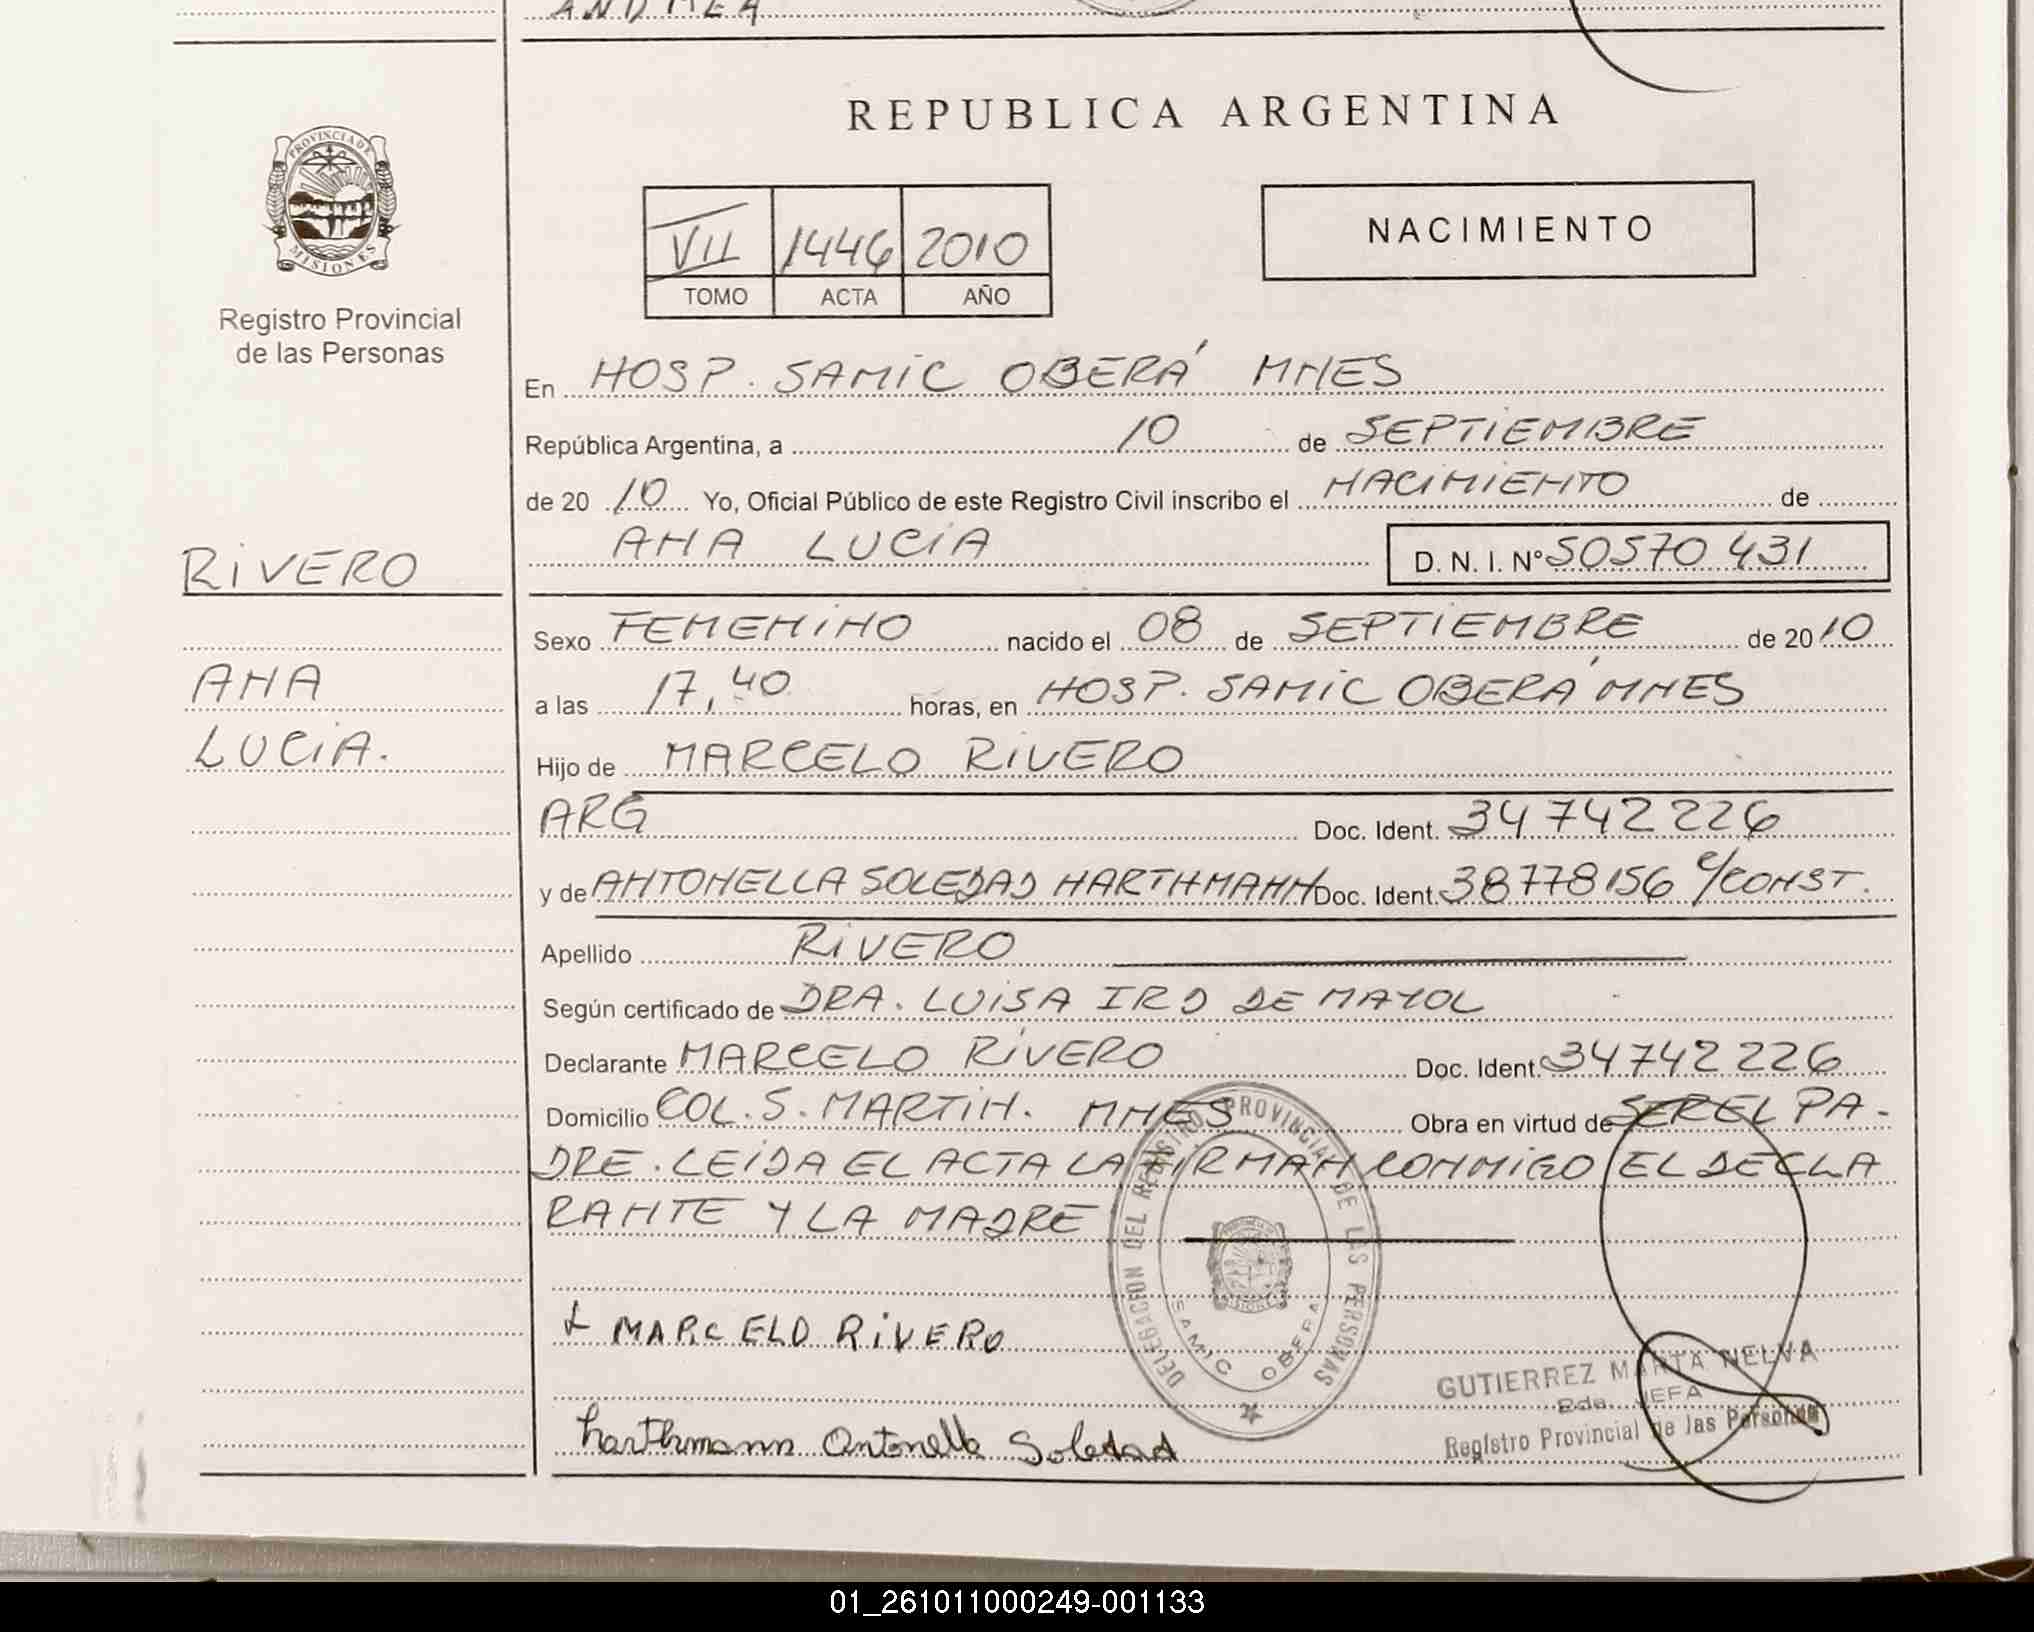 ANDREA
REPUBLICA ARGENTINA
PROVINCIA DE
MISIONES
Registro Provincial
de las Personas
VII 1446 2010
TOMO ACTA AÑO
NACIMIENTO
En HOSP. SAMIC OBERÁ MNES
República Argentina, a 10 de SEPTIEMBRE
de 20 10 Yo, Oficial Público de este Registro Civil inscribo el NACIMIENTO de
ANA LUCIA D. N. I. Nº 50570 431
RIVERO
ANA
LUCIA.
Sexo FEMENINO nacido el 08 de SEPTIEMBRE de 20 10
a las 17,40 horas, en HOSP. SAMIC OBERÁ MNES
Hijo de MARCELO RIVERO
ARG Doc. Ident. 34 742 226
y de ANTONELLA SOLEDAD HARTHMANN Doc. Ident. 38778156 c/CONST.
Apellido RIVERO
Según certificado de DRA. LUISA IRD DE MAYOL
Declarante MARCELO RIVERO Doc. Ident. 34742 226
Domicilio COL. S. MARTIN. MNES Obra en virtud de SER EL PA-
DRE. LEIDA EL ACTA LA FIRMAN CONMIGO EL DECLA
RANTE Y LA MADRE
DELEGACION DEL REGISTRO PROVINCIAL DE LAS PERSONAS
SAMIC OBERA
MARCELO RIVERO
GUTIERREZ MARTA NELVA
2da. JEFA
Registro Provincial de las Personas
Harthmann Antonella Soledad
01_261011000249-001133